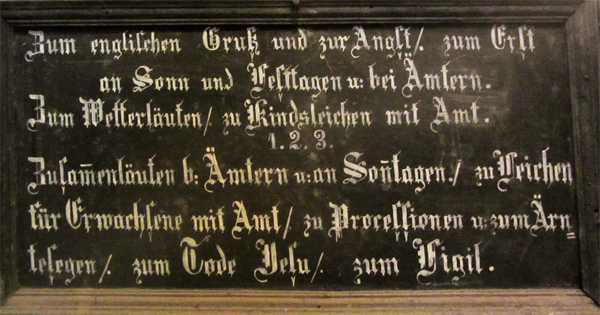 Zum engliſchen Gruß und zur Angſt/. zum Erſt
an Sonn und Feſttagen u: bei Ämtern.
Zum Wetterläuten/ zu Kindsleichen mit Amt.
1. 2. 3.
Zuſam̅enläuten b: Ämtern u: an Son̅tagen:/ zu Leichen
für Erwachſene mit Amt/. zu Proceſſionen u: zum Ärn=
teſegen/. zum Tode Jeſu/. zum Figil.